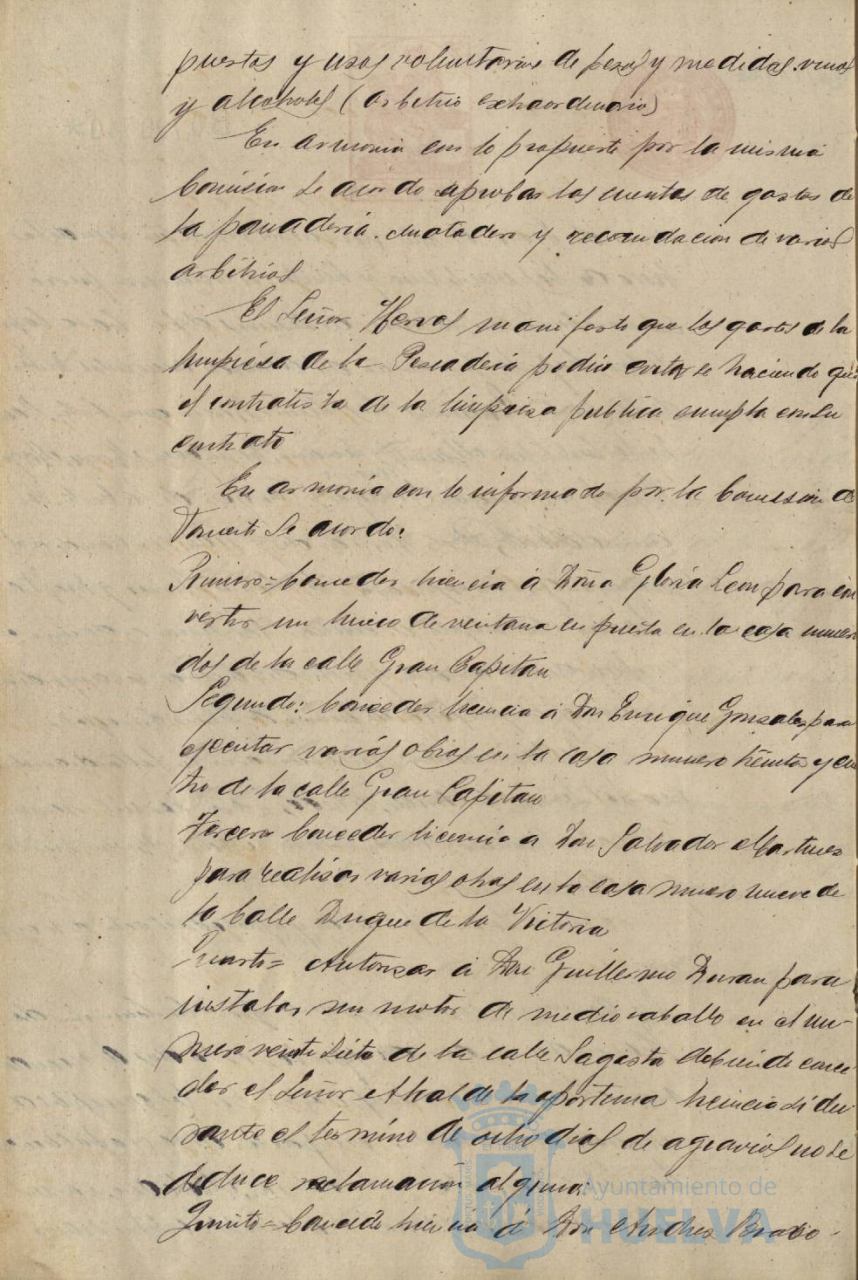 puestos y usos voluntarios de pesas y medidas vinos
y alcoholes (arbitrio extraordinario)
En armonia con lo propuesto por la misma
Comision se acordo aprobar las cuentas de gastos de
la panaderia, matadero y recaudacion de varios
arbitrios
El Señor Hervas manifesto que los gastos de la
limpieza de la Pescaderia podia evitarse haciendo que
el contratista de la limpieza publica cumpla con su
contrato
En armonia con lo informado por la Comision de
Fomento Se acordo:
Primero= Conceder licencia á Dña Gloria Leon para con
vertir un hueco de ventana en puerta en la casa numero
dos de la calle Gran Capitan
Segundo: Conceder licencia á Don Enrique Gonzalez para
ejecutar varias obras en la casa numero treinta y cua
tro de la calle Gran Capitan
Tercero Conceder licencia a Don Salvador Martinez
para realisar varias obras en la casa numero nueve de
la Calle Duque de la Victoria
Cuarto= Autorizar á Don Guillermo Duran para
instalar un motor de medio caballo en el nu-
mero veinti siete de la calle Sagasta debiendo conce
der el Señor Alcalde la oportuna licencia si du-
rante el termino de ocho dias de agravios no se
deduce reclamación alguna
Quinto= Conceder licencia á Don Andres Bravo-
Ayuntamiento de
HUELVA